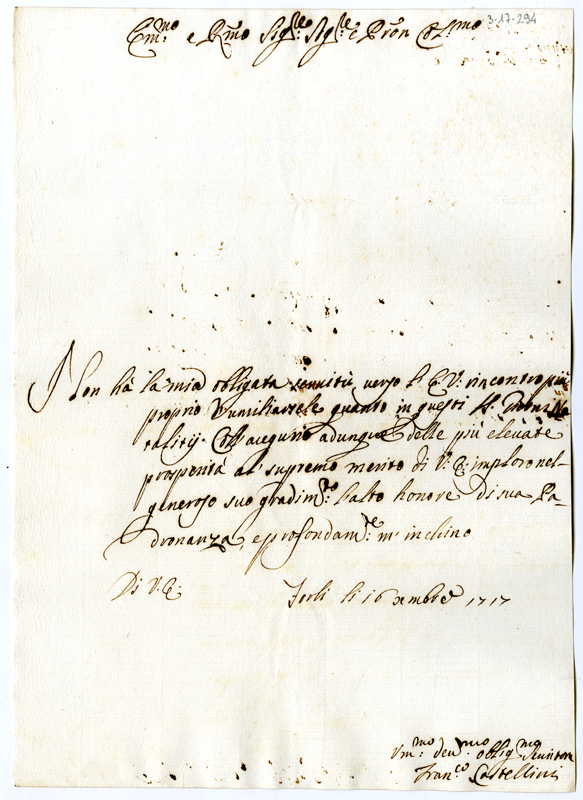 3-17-294
Em.mo e Rmo Sig.re Sig.re e Pron Col.mo
Non hà la mia obligata servitù verso l'E.V: rincontro più
proprio d'umiliarsele quanto in questi SS. Giorni Na
talitij. Coll'augurio adunque delle più elevate
prosperità al supremo merito di V.E. imploro nel
generoso suo gradim.to: l'alto honore di sua Pa-
dronanza, e profondam.te: m'inchino
Di V.E.
Forlì li 16 xmbre 1717
Um.mo: dev.mo oblig.mo Servitore
Fran.co Castellini